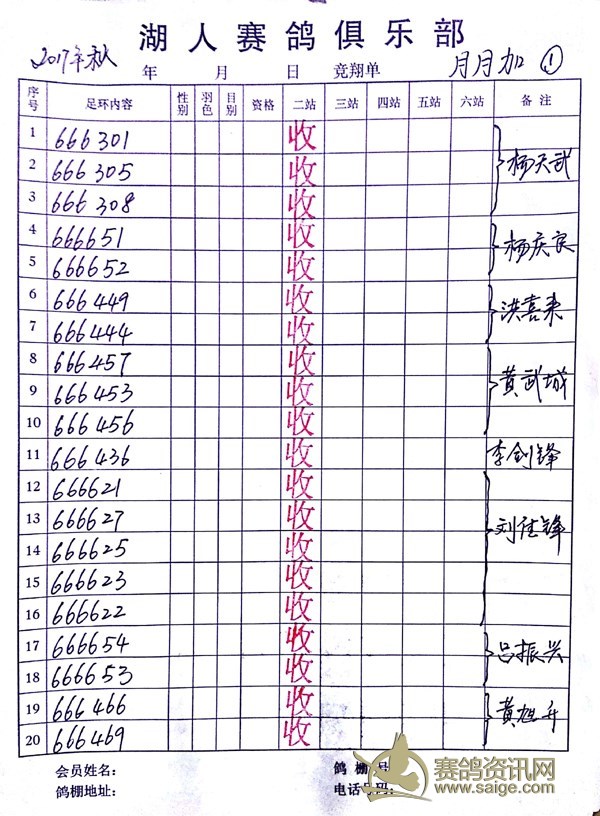 湖人赛鸽俱乐部
2017年秋 年 月 日 竞翔单 月月加 ①
序号 足环内容 性别 羽色 目别 资格 二站 三站 四站 五站 六站 备注
1 666301 收
2 666305 收 杨天武
3 666308 收
4 666651 收 杨庆良
5 666652 收
6 666449 收 洪喜来
7 666444 收
8 666457 收
9 666453 收 黄武城
10 666456 收
11 666436 收 李剑锋
12 666621 收
13 666627 收 刘佳锋
14 666625 收
15 666623 收
16 666622 收
17 666654 收 吕振兴
18 666653 收
19 666466 收 黄旭升
20 666469 收
会员姓名: 鸽棚 号
鸽棚地址: 电话号码:
赛鸽资讯网
www.saige.com